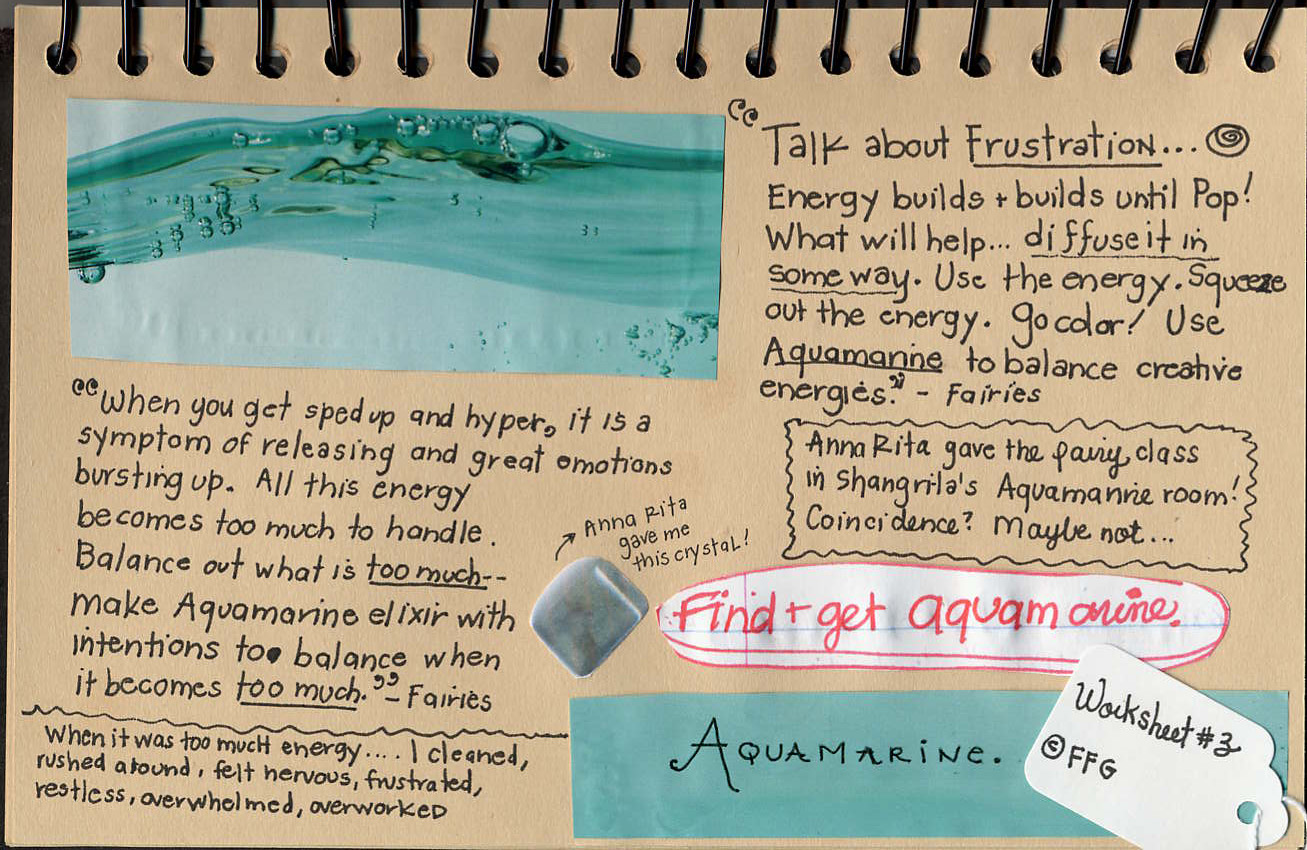 “When you get sped up and hyper, it is a
symptom of releasing and great emotions
bursting up. All this energy
becomes too much to handle.
Balance out what is too much--
make Aquamarine elixir with
intentions to balance when
it becomes too much.” - Fairies
When it was too much energy.... I cleaned,
rushed around, felt nervous, frustrated,
restless, overwhelmed, overworked
Anna Rita
gave me
this crystal!
“Talk about Frustration...
Energy builds + builds until Pop!
What will help... diffuse it in
some way. Use the energy. Squeeze
out the energy. Go color! Use
Aquamarine to balance creative
energies.” - Fairies
Anna Rita gave the fairy class
in Shangrila's Aquamarine room!
Coincidence? Maybe not...
Find + get aquamarine.
AQUAMARINE.
Worksheet #3
© FFG